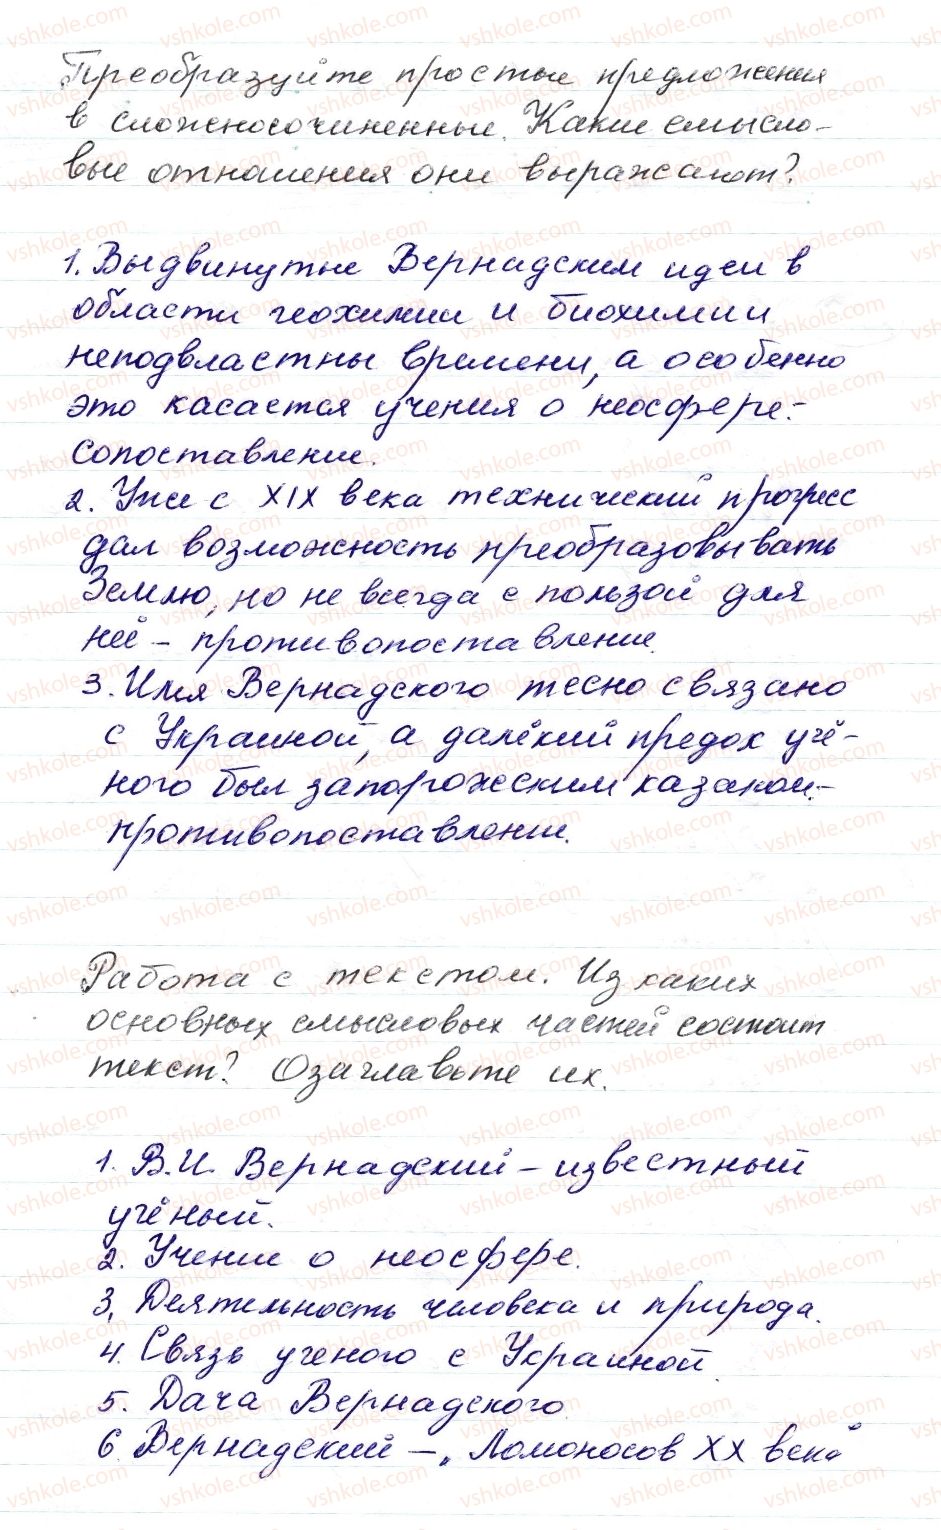 Преобразуйте простые предложения
в сложносочиненные. Какие смысло-
вые отношения они выражают?
1. Выдвинутые Вернадским идеи в
области геохимии и биохимии
неподвластны времени, а особенно
это касается учения о неосфере.-
сопоставление.
2. Уже с XIX века технический прогресс
дал возможность преобразовывать
Землю, но не всегда с пользой для
неё - противопоставление.
3. Имя Вернадского тесно связано
с Украиной, а далёкий предок учё-
ного был запорожским казаком.-
противопоставление.
Работа с текстом. Из каких
основных смысловых частей состоит
текст? Озаглавьте их.
1. В.И. Вернадский - известный
учёный.
2. Учение о неосфере.
3. Деятельность человека и природа.
4. Связь ученого с Украиной.
5. Дача Вернадского.
6. Вернадский - „Ломоносов XX века"